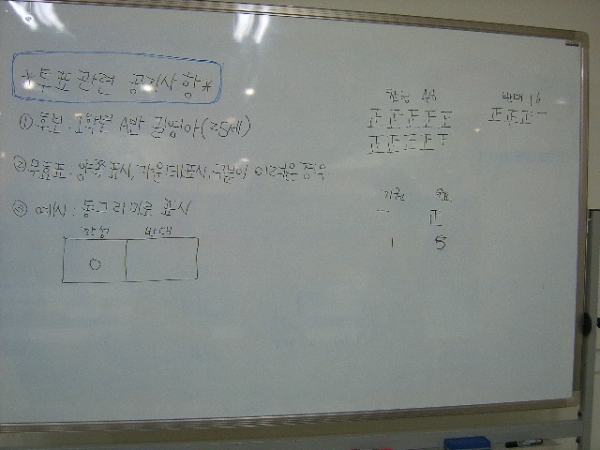 *투표관련 공지사항*
① 후보 : 1학년 A반 김영아 (35세)
② 무효표 : 양쪽표시, 가운데표시, 구분이 어려운 경우
③ 예시 : 동그라미로 표시
찬성 반대
○
찬성
正正正正正
正正正
반대 16
正正正一
기권 무효
一 正
1 5